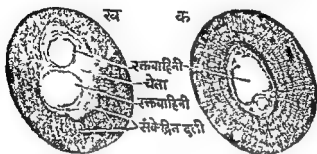 ख क
रक्तवाहिनी
चेता
रक्तवाहिनी
संकेंद्रित दुली